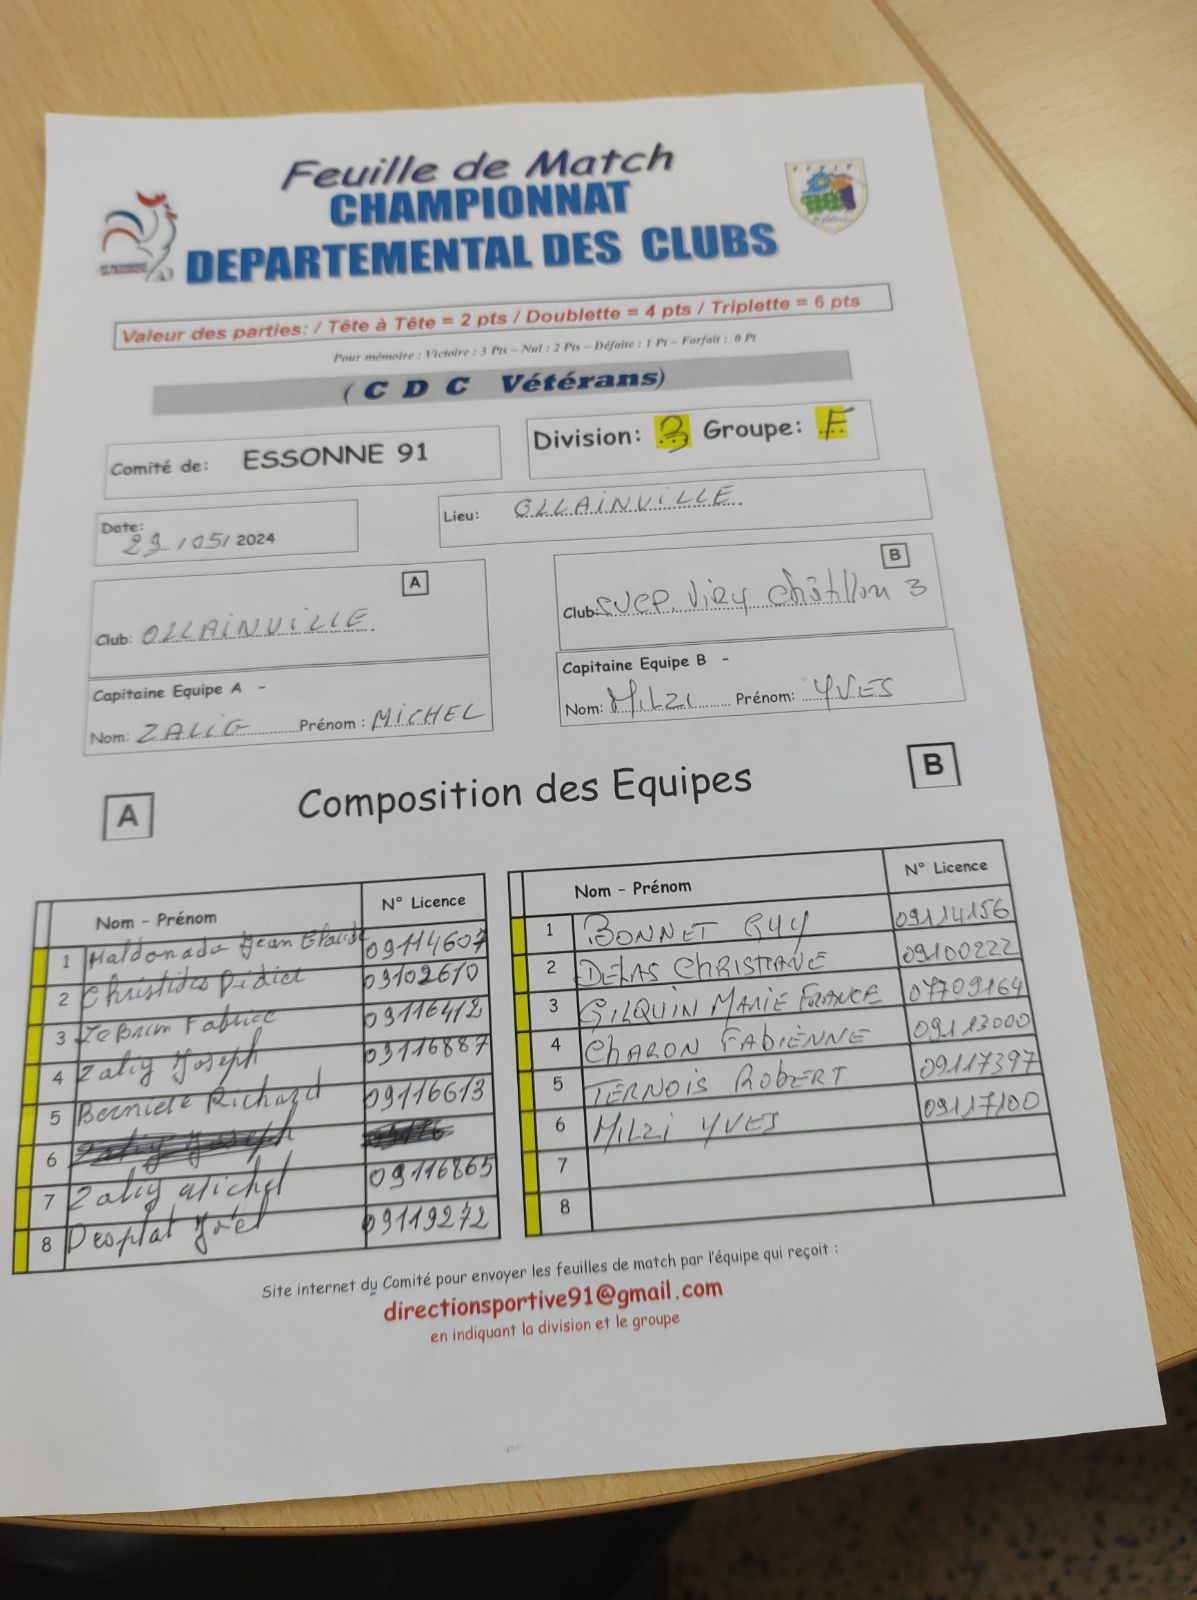 Feuille de Match
CHAMPIONNAT
DEPARTEMENTAL DES CLUBS
Valeur des parties: / Tête à Tête = 2 pts / Doublette = 4 pts / Triplette = 6 pts
Pour mémoire : Victoire : 3 Pts – Nul : 2 Pts – Défaite : 1 Pt – Forfait : 0 Pt
( C D C Vétérans)
Comité de: ESSONNE 91
Division: 3 Groupe: F
Date: 23/05/2024
Lieu: OLLAINVILLE
A
Club: OLLAINVILLE
B
Club: SUCP. Viry Châtillon 3
Capitaine Equipe A -
Nom: ZALIG Prénom : MICHEL
Capitaine Equipe B -
Nom: MILZI Prénom: YVES
A
Composition des Equipes
B
Nom - Prénom N° Licence
1 Maldonado Jean Claude 09114607
2 Christides Didier 09102610
3 LeBrun Fabrice 09116412
4 Zalig Joseph 09116887
5 Berniere Richard 09116613
6
7 Zalig Michel 09116865
8 Desplat Joël 09119272
Nom - Prénom N° Licence
1 BONNET GUY 09114156
2 DELAS CHRISTIANE 09100222
3 GILQUIN MARIE FRANCE 07709164
4 CHARON FABIENNE 09113000
5 TERNOIS ROBERT 09117397
6 MILZI YVES 09117100
7
8
Site internet du Comité pour envoyer les feuilles de match par l'équipe qui reçoit :
directionsportive91@gmail.com
en indiquant la division et le groupe